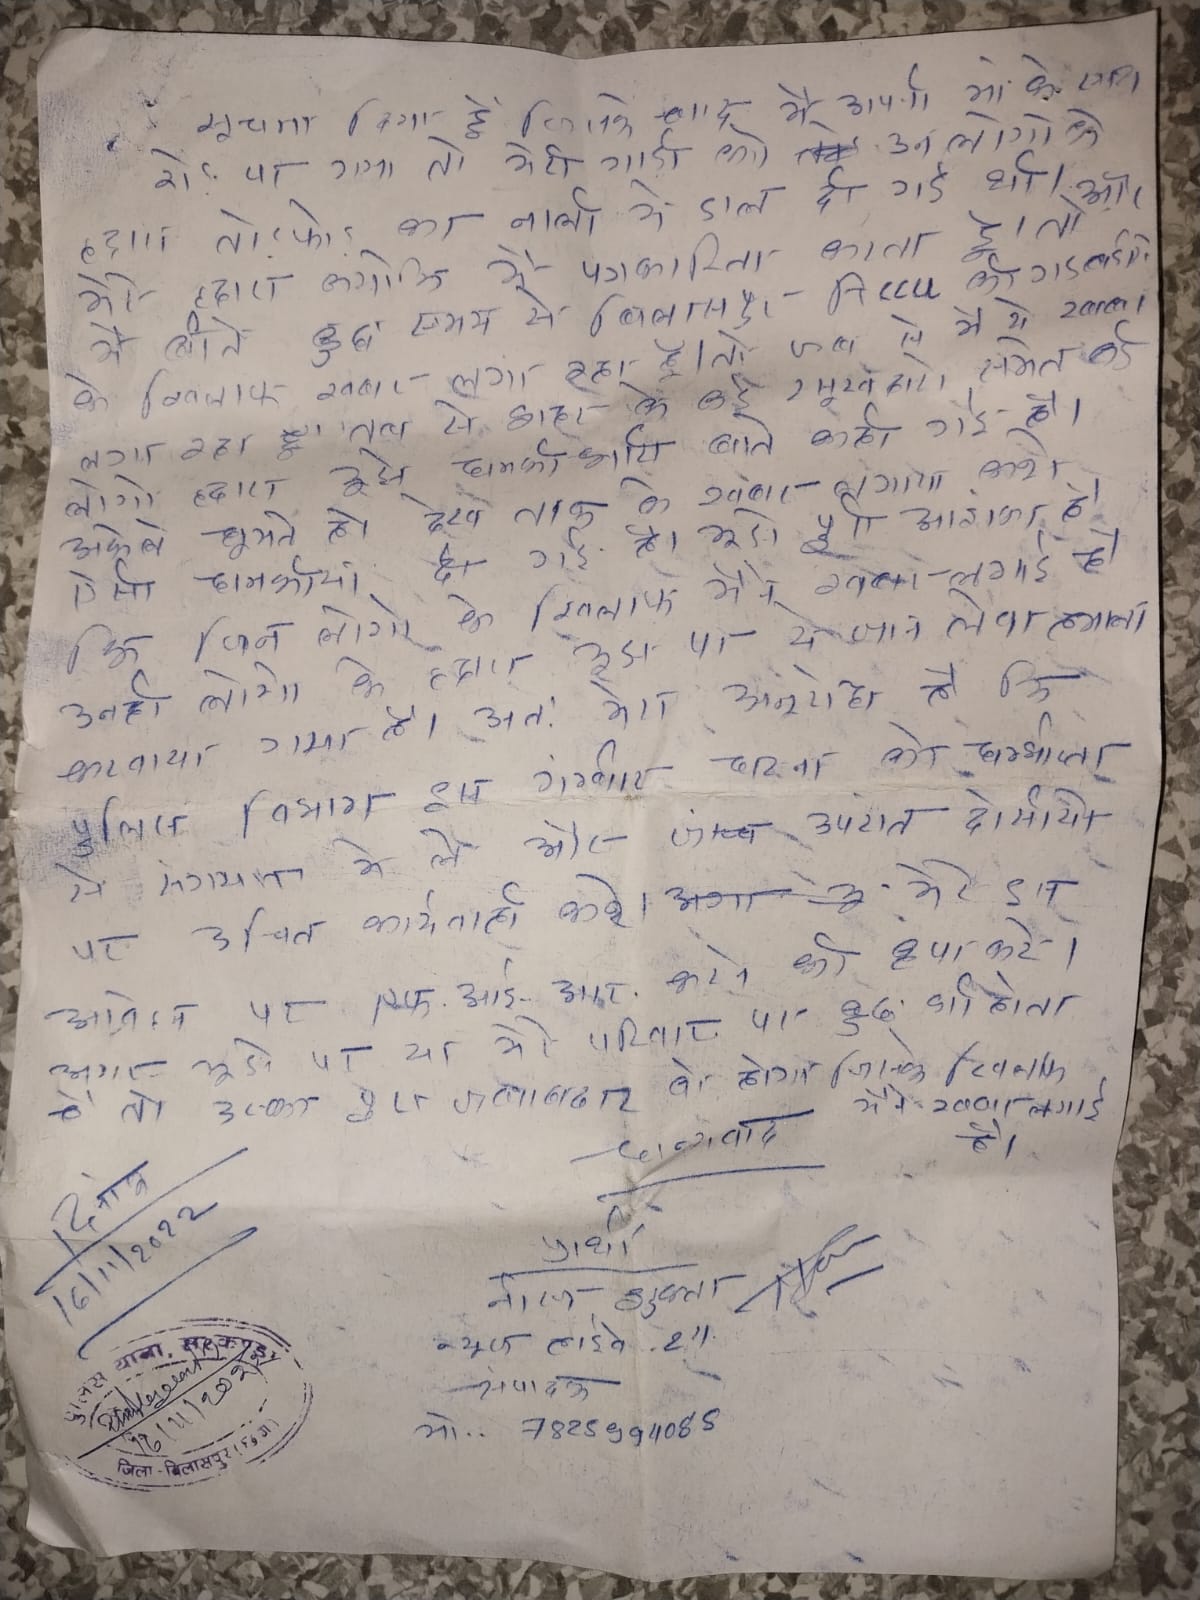 सूचना दिया हूँ जिसके बाद मैं अपनी माँ के साथ
रोड पर गया तो मेरी गाड़ी को उन लोगों के
द्वारा तोड़फोड़ कर नाली में डाल दी गई थी। और
मेरे द्वारा क्योंकि मैं पत्रकारिता करता हूँ। तो
मैं बीते कुछ समय से बिलासपुर की
के खिलाफ खबर लगा रहा हूँ। तो जब से मैं ये खबर
लगा रहा हूँ। तब से शहर के कई समेत कई
लोगो द्वारा मुझे धमकी भरी बाते कही गई है।
अकेले घुमते हो देख ताक के खबर लगाया करो
ऐसी धमकीयां दी गई है। मुझे पूरी आशंका है।
कि जिन लोगो के खिलाफ मैने खबर लगाई है
उनही लोगो के द्वारा मुझ पर ये जान लेवा हमला
करवाया गया है। अतः मेरा अनुरोध है कि
पुलिस विभाग इस गंभीर घटना को
से संज्ञान मे ले और जांच उपरांत दोषीयो
पर उचित कार्यवाही करे। मेरे इस
आवेदन पर एफ. आई. आर. करने की कृपा करे।
अगर मुझे पर या मेरे परिवार पर कुछ भी होता
है तो उसका पुरा जवाबदार वो होगा जिनके खिलाफ
मैने खबर लगाई
है।
धन्यवाद
दिनांक
16/11/2022
प्रार्थी
नीरज शुक्ला
न्यूज लाईव
संपादक
मो.. 7825994085
पुलिस थाना, सरकण्डा
16/11/2022
जिला-बिलासपुर (छ.ग.)